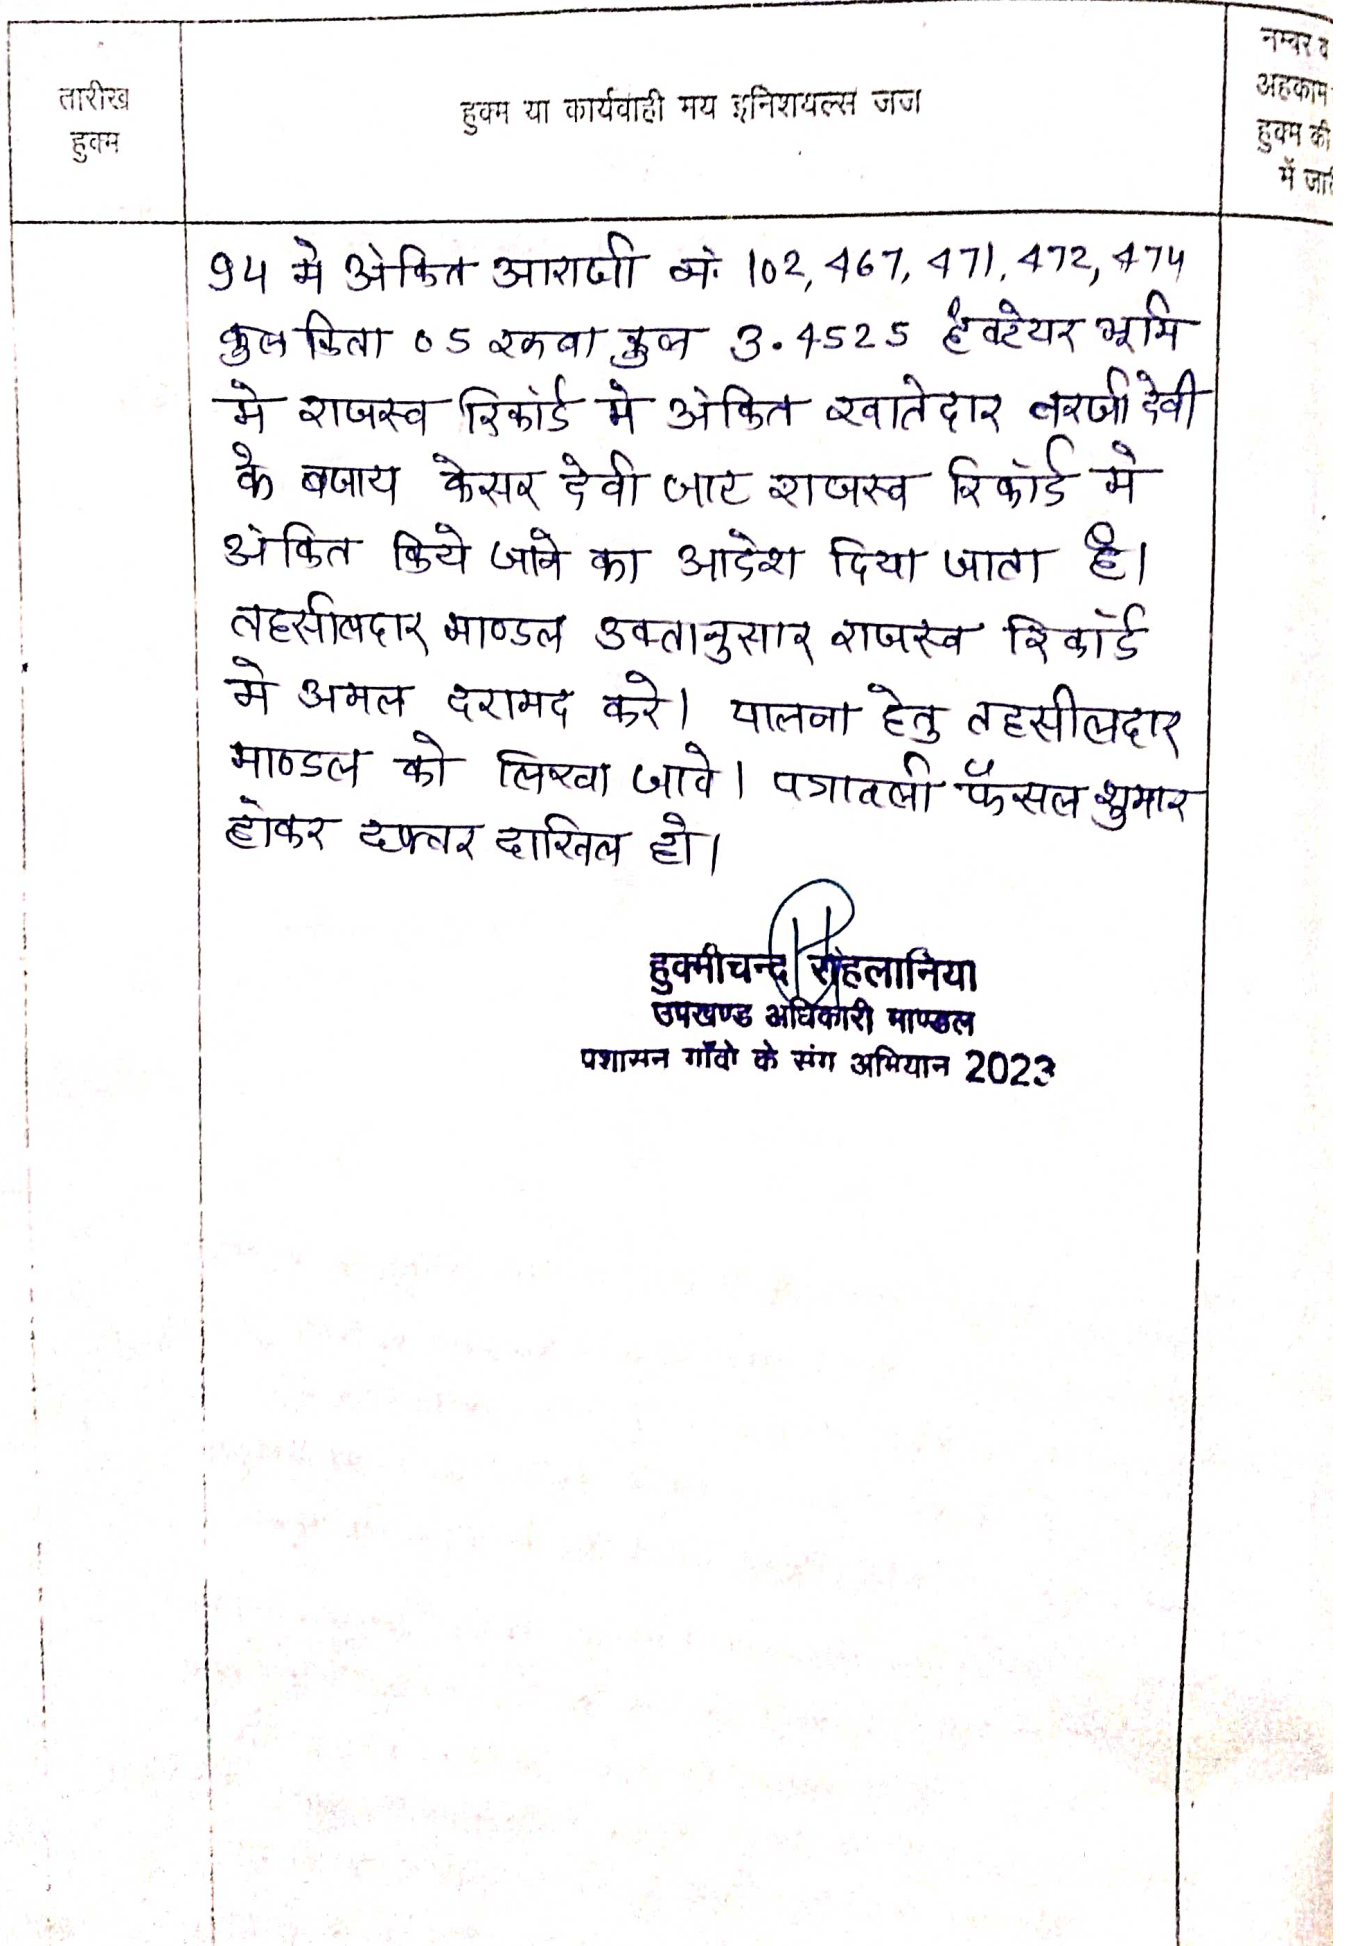 तारीख
हुक्म
हुक्म या कार्यवाही मय इनिशयल्स जज
नम्बर व
अहकाम
हुक्म की
में जारी
94 मे अंकित आराजी नं. 102, 467, 471, 472, 474
कुल किता 05 रकबा कुल 3.4525 हैक्टेयर भूमि
मे राजस्व रिकॉर्ड मे अंकित खातेदार बरजी देवी
के बजाय केसर देवी जाट राजस्व रिकॉर्ड मे
अंकित किये जाने का आदेश दिया जाता है।
तहसीलदार माण्डल उक्तानुसार राजस्व रिकॉर्ड
मे अमल दरामद करे। पालना हेतु तहसीलदार
माण्डल को लिखा जावे। पत्रावली फैसल शुमार
होकर दफ्तर दाखिल हो।
हुक्मीचन्द रोहलानिया
उपखण्ड अधिकारी माण्डल
प्रशासन गाँवो के संग अभियान 2023